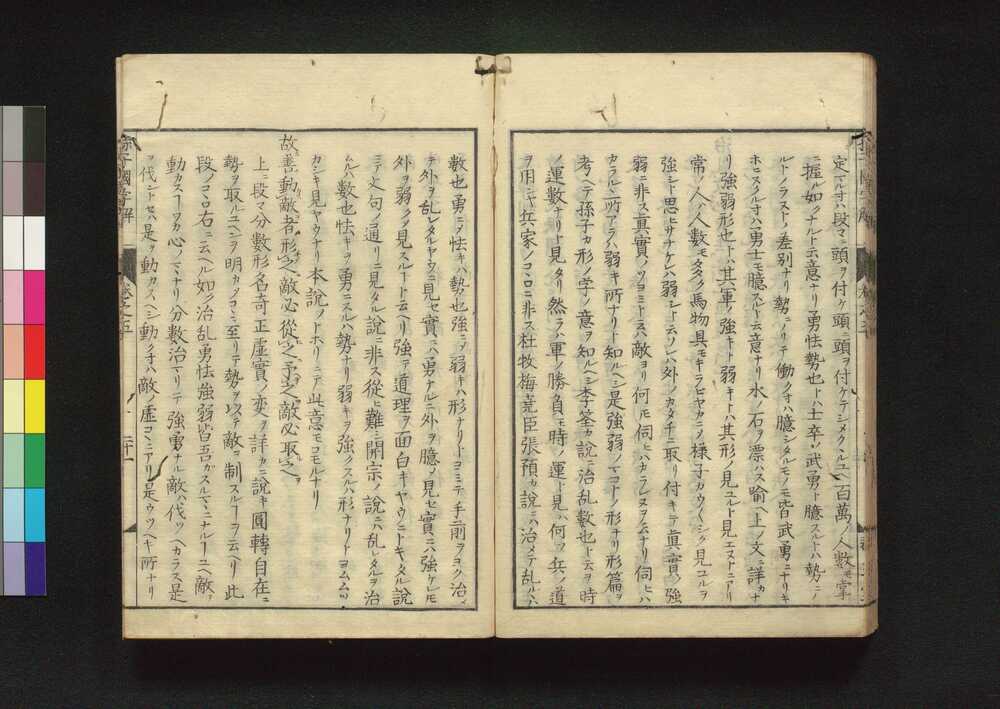 定マルオハ段マニ頭ヲ付ケ頭ニ頭ヲ付ケテシメクヽルユヘ百萬ノ人數モ掌
ニ握ル如クナルト云意ナリ勇怯勢也トハ士卒ノ武勇ト臆スルトハ勢ニノ
ルトノラストノ差別ナリ勢ニノリテ働クオハ臆シタルモノモ皆武勇ニナリキ
ホヒヌクルオハ勇士モ臆スルト云意ナリ水ノ石ヲ漂ハス喩ヘ上ノ文ニ詳カナ
リ強弱形也トハ其軍ノ強キト弱キトハ其形ノ見ユルト見エヌトニアリ
常ノ人ハ人數モ多ク馬物具モキラヒヤカニノ様子カウ〱シク見ユルヲ
強シト思ヒサナケレハ弱シト云ソレハ外ノカタチニ取リ付キテ真實ノ強
弱ニ非ス真實ノツヨミト云ハ敵ヨリ何モ伺ヒハカラレヌヲ云ナリ伺ヒハ
カラルヽ所アラハ弱キ所ナリト知ルヘシ是強弱ノマコトノ形ナリ形篇ヲ
考ヘテ孫子カ形ノ字ノ意ヲ知ルヘシ李筌カ説ニ治乱數也ト云ヲ時
ノ運數ナリト見タリ然ラハ軍ノ勝負モ時ノ運ト見ハ何ソ兵ノ道
ヲ用ンヤ兵家ノコヽロニ非ス杜牧梅堯臣張預カ説ニハ治メテ乱ルハ
數也勇ニノ怯キハ勢也強ニノ弱キハ形ナリトヨミテ手前ヲヨク治メ
テ外ヲ乱レタルヤウニ見セ實ニハ勇ケルニ外ヲ臆ノ見セ實ニハ強ケレモ
外ヲ弱クノ見スルート云ヘリ強テ道理ヲ面白キヤウニトキタル説
ニテ文句ノ通リニ見タル説ニ非ス從ヒ難シ開宗ノ説ニハ乱レタルヲ治
ムルハ數也怯キヲ勇ニスルハ勢ナリ弱キヲ強クスルハ形ナリトヨムムツ
カシキ見ヤウナリ本説ノトホリニテ此意モコモルナリ
故善動敵者形之敵必從之予之敵必取之
上ニ段マ分數形名奇正虚實ノ変ヲ詳カニ説キ圓轉自在ニ
勢ヲ取ルユヘンヲ明カノコヽニ至リテ勢ヲ以テ敵ヲ制スルーヲ云ヘリ此
段ノコヽロ右ニ云ヘル如ク治乱勇怯強弱皆吾ガスルマヽニナルーユヘ敵ヲ
動カスーワカ心ノマヽナリ分數治マリテ強勇ナル敵ハ伐ツヘカラス是
ヲ伐ントセハ是ヲ動カスヘシ動クオハ敵ノ虚コヽニアリ是ウツヘキ所ナリ
孫子國字解
卷之五
二十一